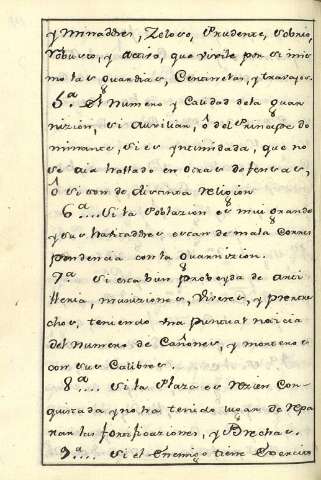 y Minadores, Zeloso, Prudente, Sobrio,
robusto, y activo, que visite por si mis
mo las guardias, Centinelas, y travajos.
5.ª El Numero y Calidad dela guar
nizión, si Auxiliar, ô del Principe do
minante, si es yntimidada, que no
se aia hallado en otras defensas,
ô si son de distinta religion
6.ª .... Si la Poblazion es mui grande
y sus havitadores estan de mala Corres
pondencia con la guarnizion.
7.ª Si esta bien probeyda de Arti
lleria, municiones, Viveres, y pertre
chos, teniendo Una puntual noticia
del Numero de Cañones, y morteros
con sus Calibres.
8.ª .... Si la Plaza es rezien Con
quistada y no ha tenido lugar de repa
rar las fortificaciones, y Brechas.
9.ª .... Si el Enemigo tiene Exercito